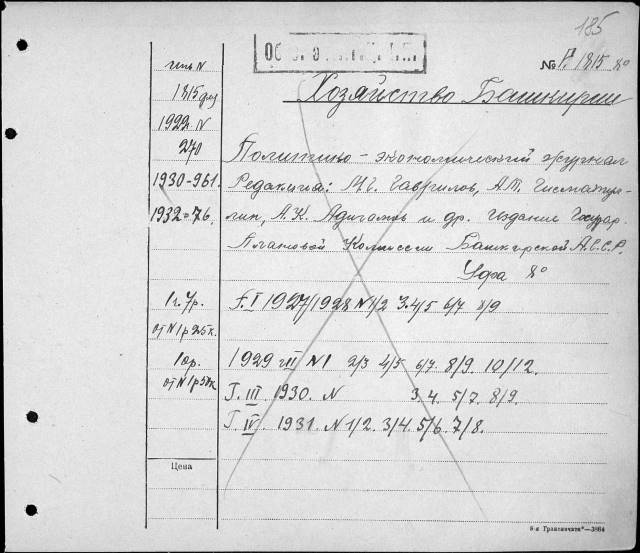 185
№ P. 1815 8°
Хозяйство Башкирии
1815
1922 IV
270
Политико-экономический журнал
1930-961. Редакция: М. Гаврилов, А.
1932=76. А. К. Адигамов и др. Издание Государ.
Плановой Комиссии Башкирской А.С.С.Р.
Уфа 8°
1 г. 7р. Г. I 1927/1928 N 1/2 3.4/5 6/7 8/9
от N 1р 25к.
1929 N 1 2/3 4/5 6/7. 8/9. 10/12.
от N 1р 50к
Т. III 1930. N 3. 4. 5/7. 8/9.
Т. IV. 1931. N 1/2. 3/4. 5/6. 7/8.
Цена
8-я Транспечати"—3864